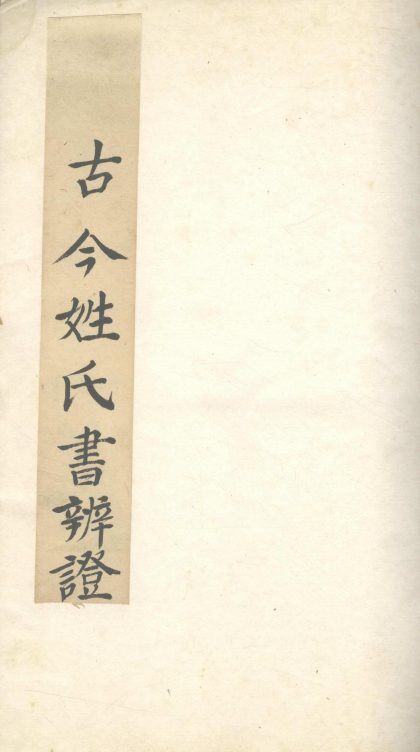 古今姓氏書辨證